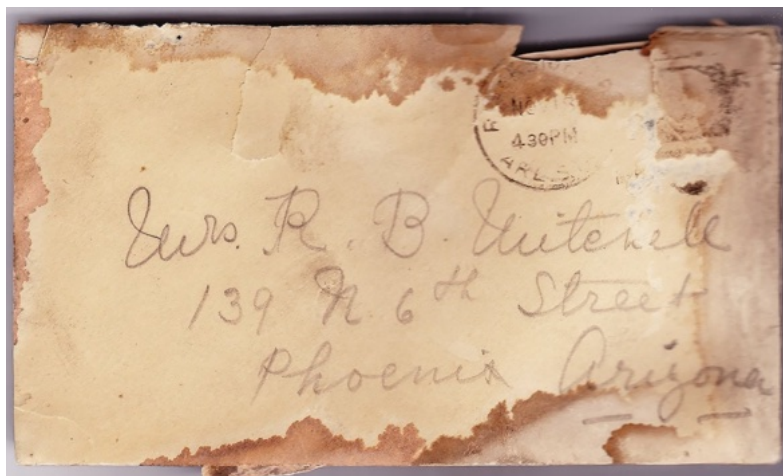 NOV 18
430PM
Mrs. R. B. Mitchell
139 N. 6th Street
Phoenix Arizona